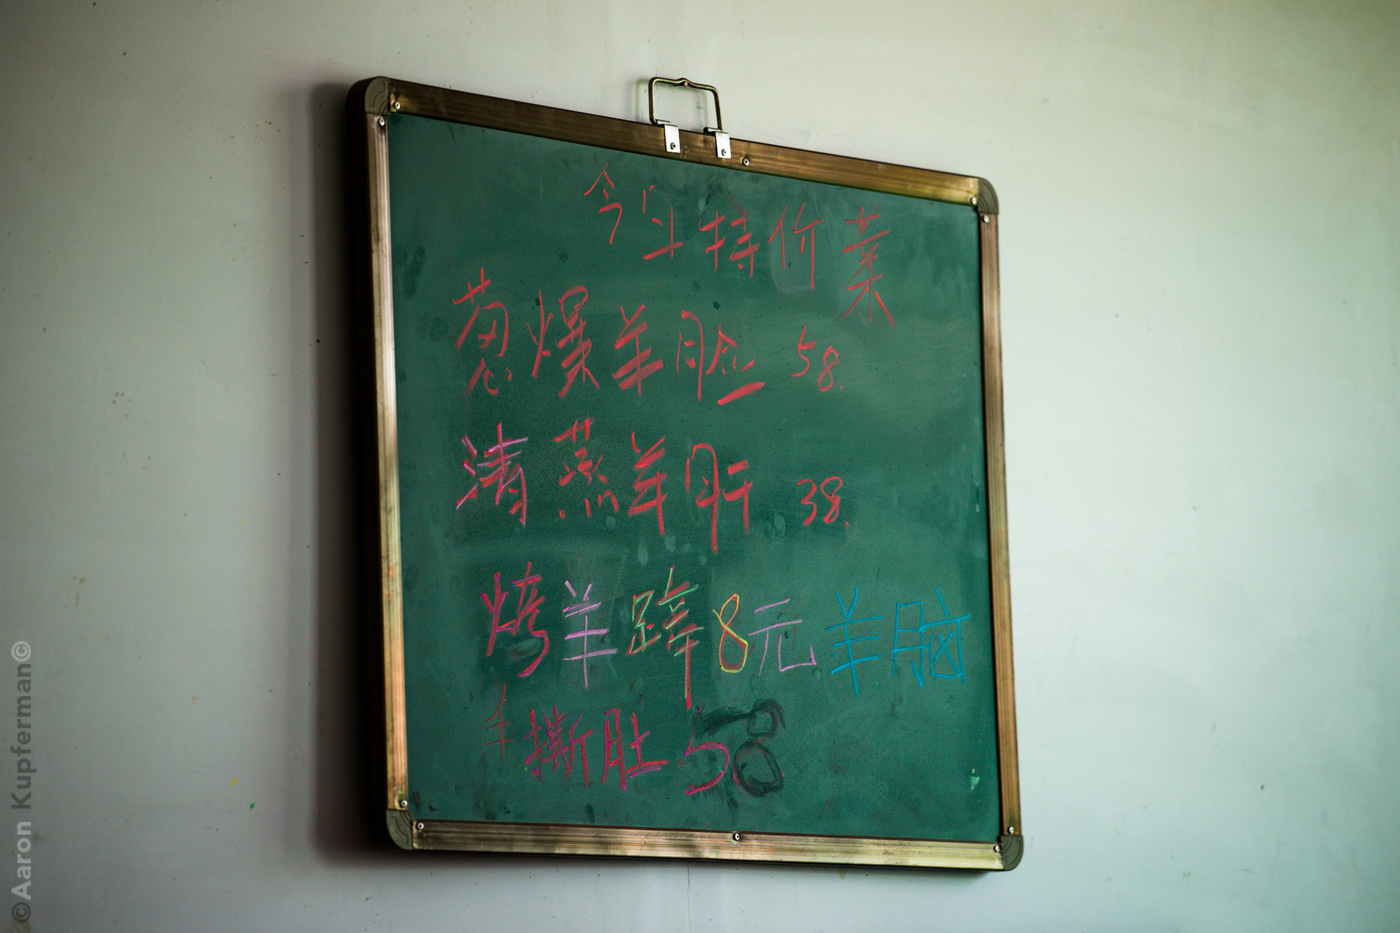 今日特价菜
葱爆羊脸 58.
清蒸羊肝 38.
烤羊蹄8元 羊脑
手撕肚 58
©Aaron Kupferman©